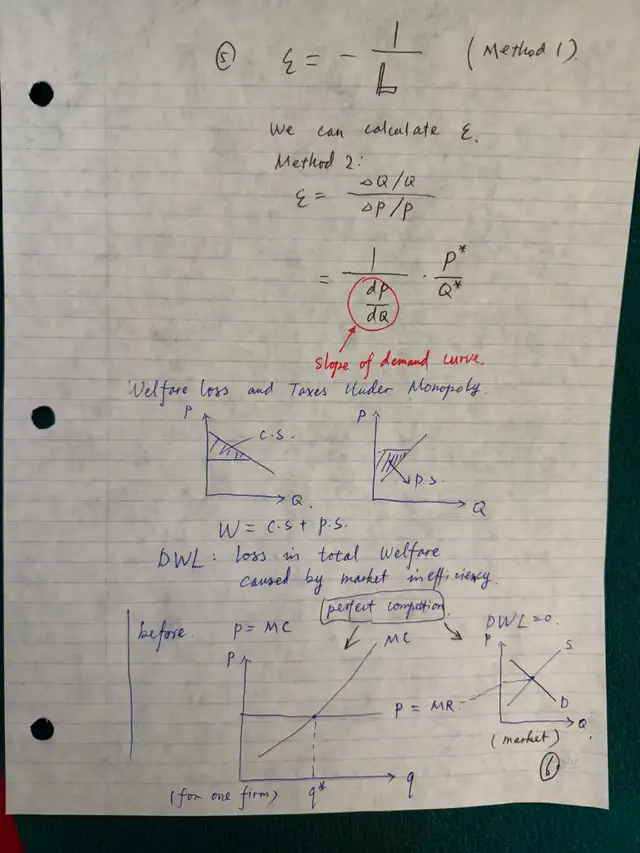 ⑤ ε = - 1/L (Method 1).
We can calculate ε.
Method 2:
ε = ΔQ/Q / ΔP/P
= 1 / dP/dQ · P*/Q*
Slope of demand curve.
Welfare loss and Taxes Under Monopoly.
P C.S. Q.
P P.S. Q
W = C.S + P.S.
DWL: loss in total Welfare
caused by market inefficiency.
perfect compettion.
before. P = MC
DWL=0.
P MC
P S.
P = MR.
D Q.
(market)
(for one firm) q* q
⑥